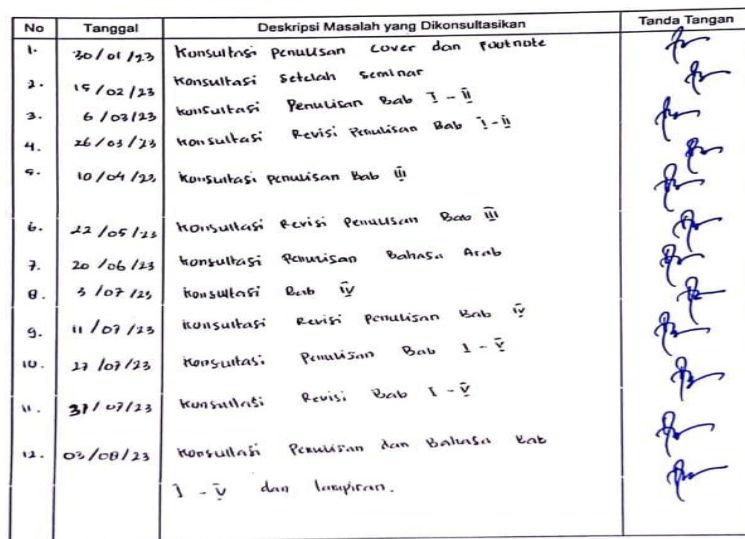 No Tanggal Deskripsi Masalah yang Dikonsultasikan Tanda Tangan
1. 30/01/23 Konsultasi penulisan cover dan footnote
2. 15/02/23 Konsultasi setelah seminar
3. 6/03/23 Konsultasi Penulisan Bab I - II
4. 26/03/23 Konsultasi Revisi Penulisan Bab I - II
5. 10/04/23 Konsultasi penulisan Bab III
6. 22/05/23 Konsultasi Revisi Penulisan Bab III
7. 20/06/23 Konsultasi Penulisan Bahasa Arab
8. 3/07/23 Konsultasi Bab IV
9. 11/07/23 Konsultasi Revisi Penulisan Bab IV
10. 27/07/23 Konsultasi Penulisan Bab I - V
11. 31/07/23 Konsultasi Revisi Bab I - V
12. 03/08/23 Konsultasi Penulisan dan Bahasa Bab
I - V dan lampiran.